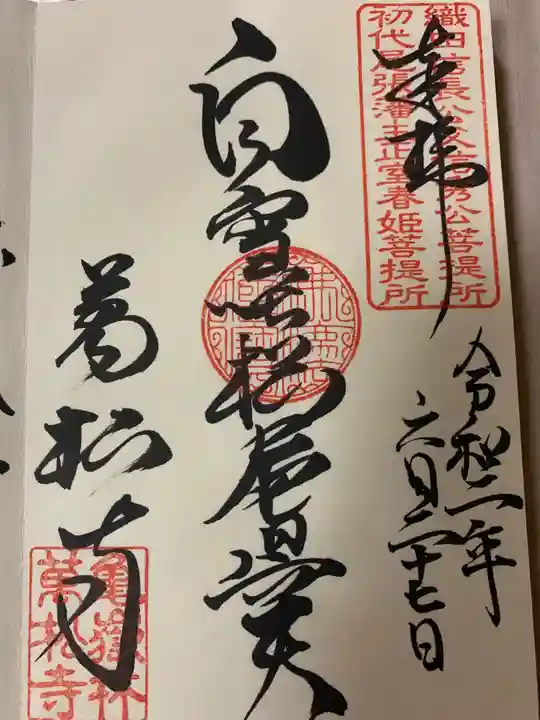 奉拝
織田信長公父信秀公菩提所
初代尾張藩主正室春姫菩提所
令和二年
六月二十七日
白雪吒枳尼眞天
萬松寺
亀嶽林
萬松寺